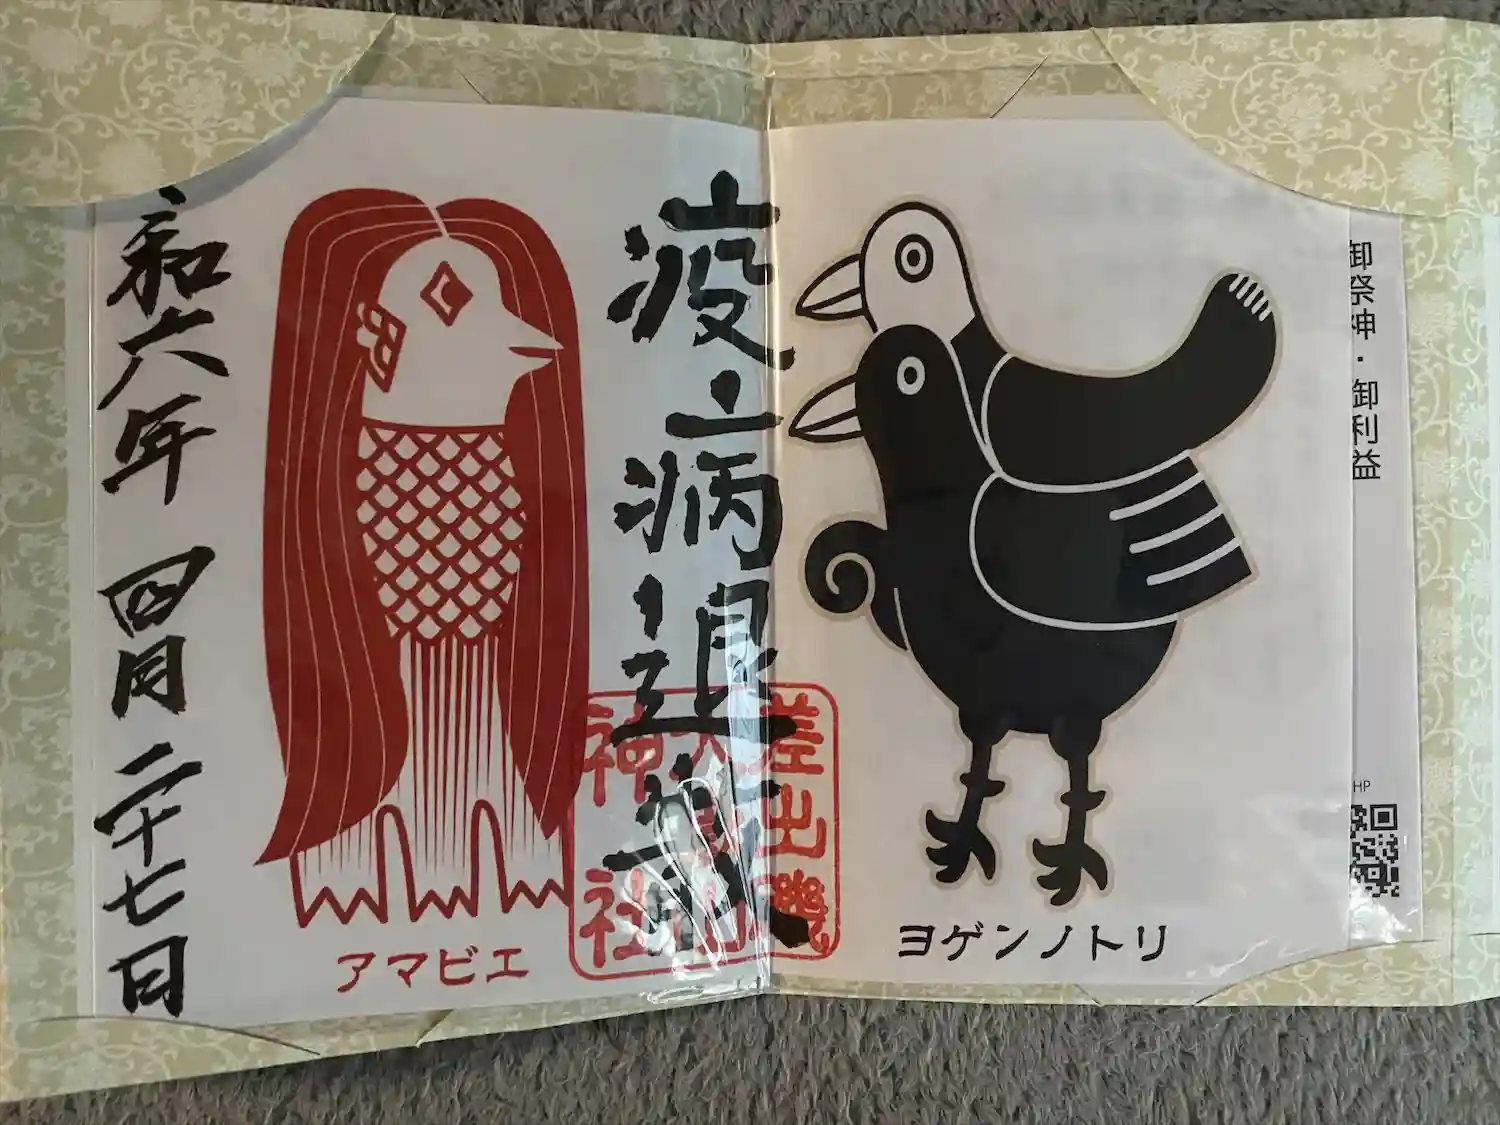 御祭神・御利益
HP
ヨゲンノトリ
疫病退散
差出磯
大嶽山
神社
アマビエ
令和六年 四月 二十七日